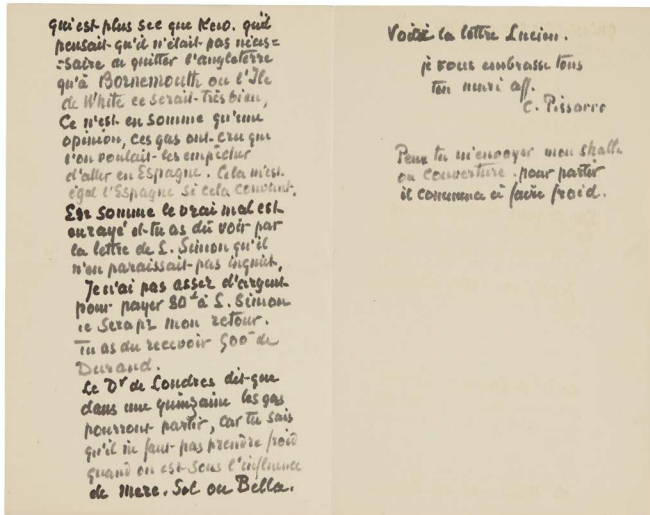 qui est plus sec que Kew. qu'il
pensait qu'il n'était pas néces=
=saire de quitter l'angleterre
qu'à Bornemouth ou l'Ile
de White ce serait très bien,
Ce n'est en somme qu'une
opinion, ces gas ont cru que
l'on voulait les empêcher
d'aller en Espagne. Cela m'est
égal l'Espagne si cela convient.
En somme le vrai mal est
enrayé et tu as dû voir par
la lettre de L. Simon qu'il
n'en paraissait pas inquiet,
Je n'ai pas assez d'argent
pour payer 80 à L. Simon
ce sera pr mon retour.
Tu as du recevoir 500 de
Durand.
Le Dr de Londres dit que
dans une quinzaine les gas
pourront partir, car tu sais
qu'il ne faut pas prendre froid
quand on est sous l'influence
de Merc. Sol ou Bella.
Voici la lettre Lucien.
je vous embrasse tous
ton mari aff.
C. Pissarro
Peux tu m'envoyer mon shall
ou couverture pour partir
il commence à faire froid.